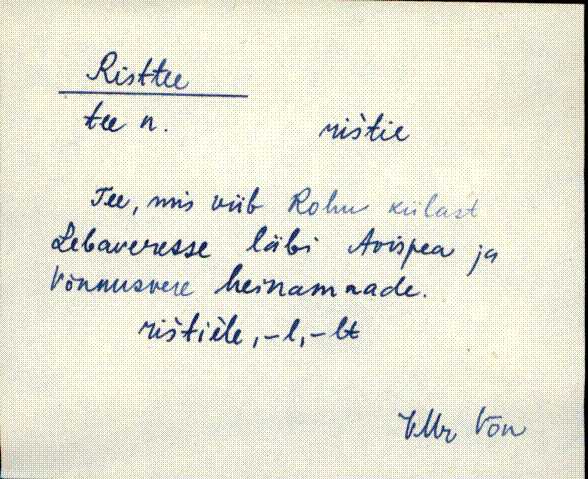 Risttee
tee n. rištie
Tee, mis viib Rohu külast
Lebaveresse läbi Avispea ja
Võnnusvere heinamaade.
rištièle, -l, -lt
VMr Võn